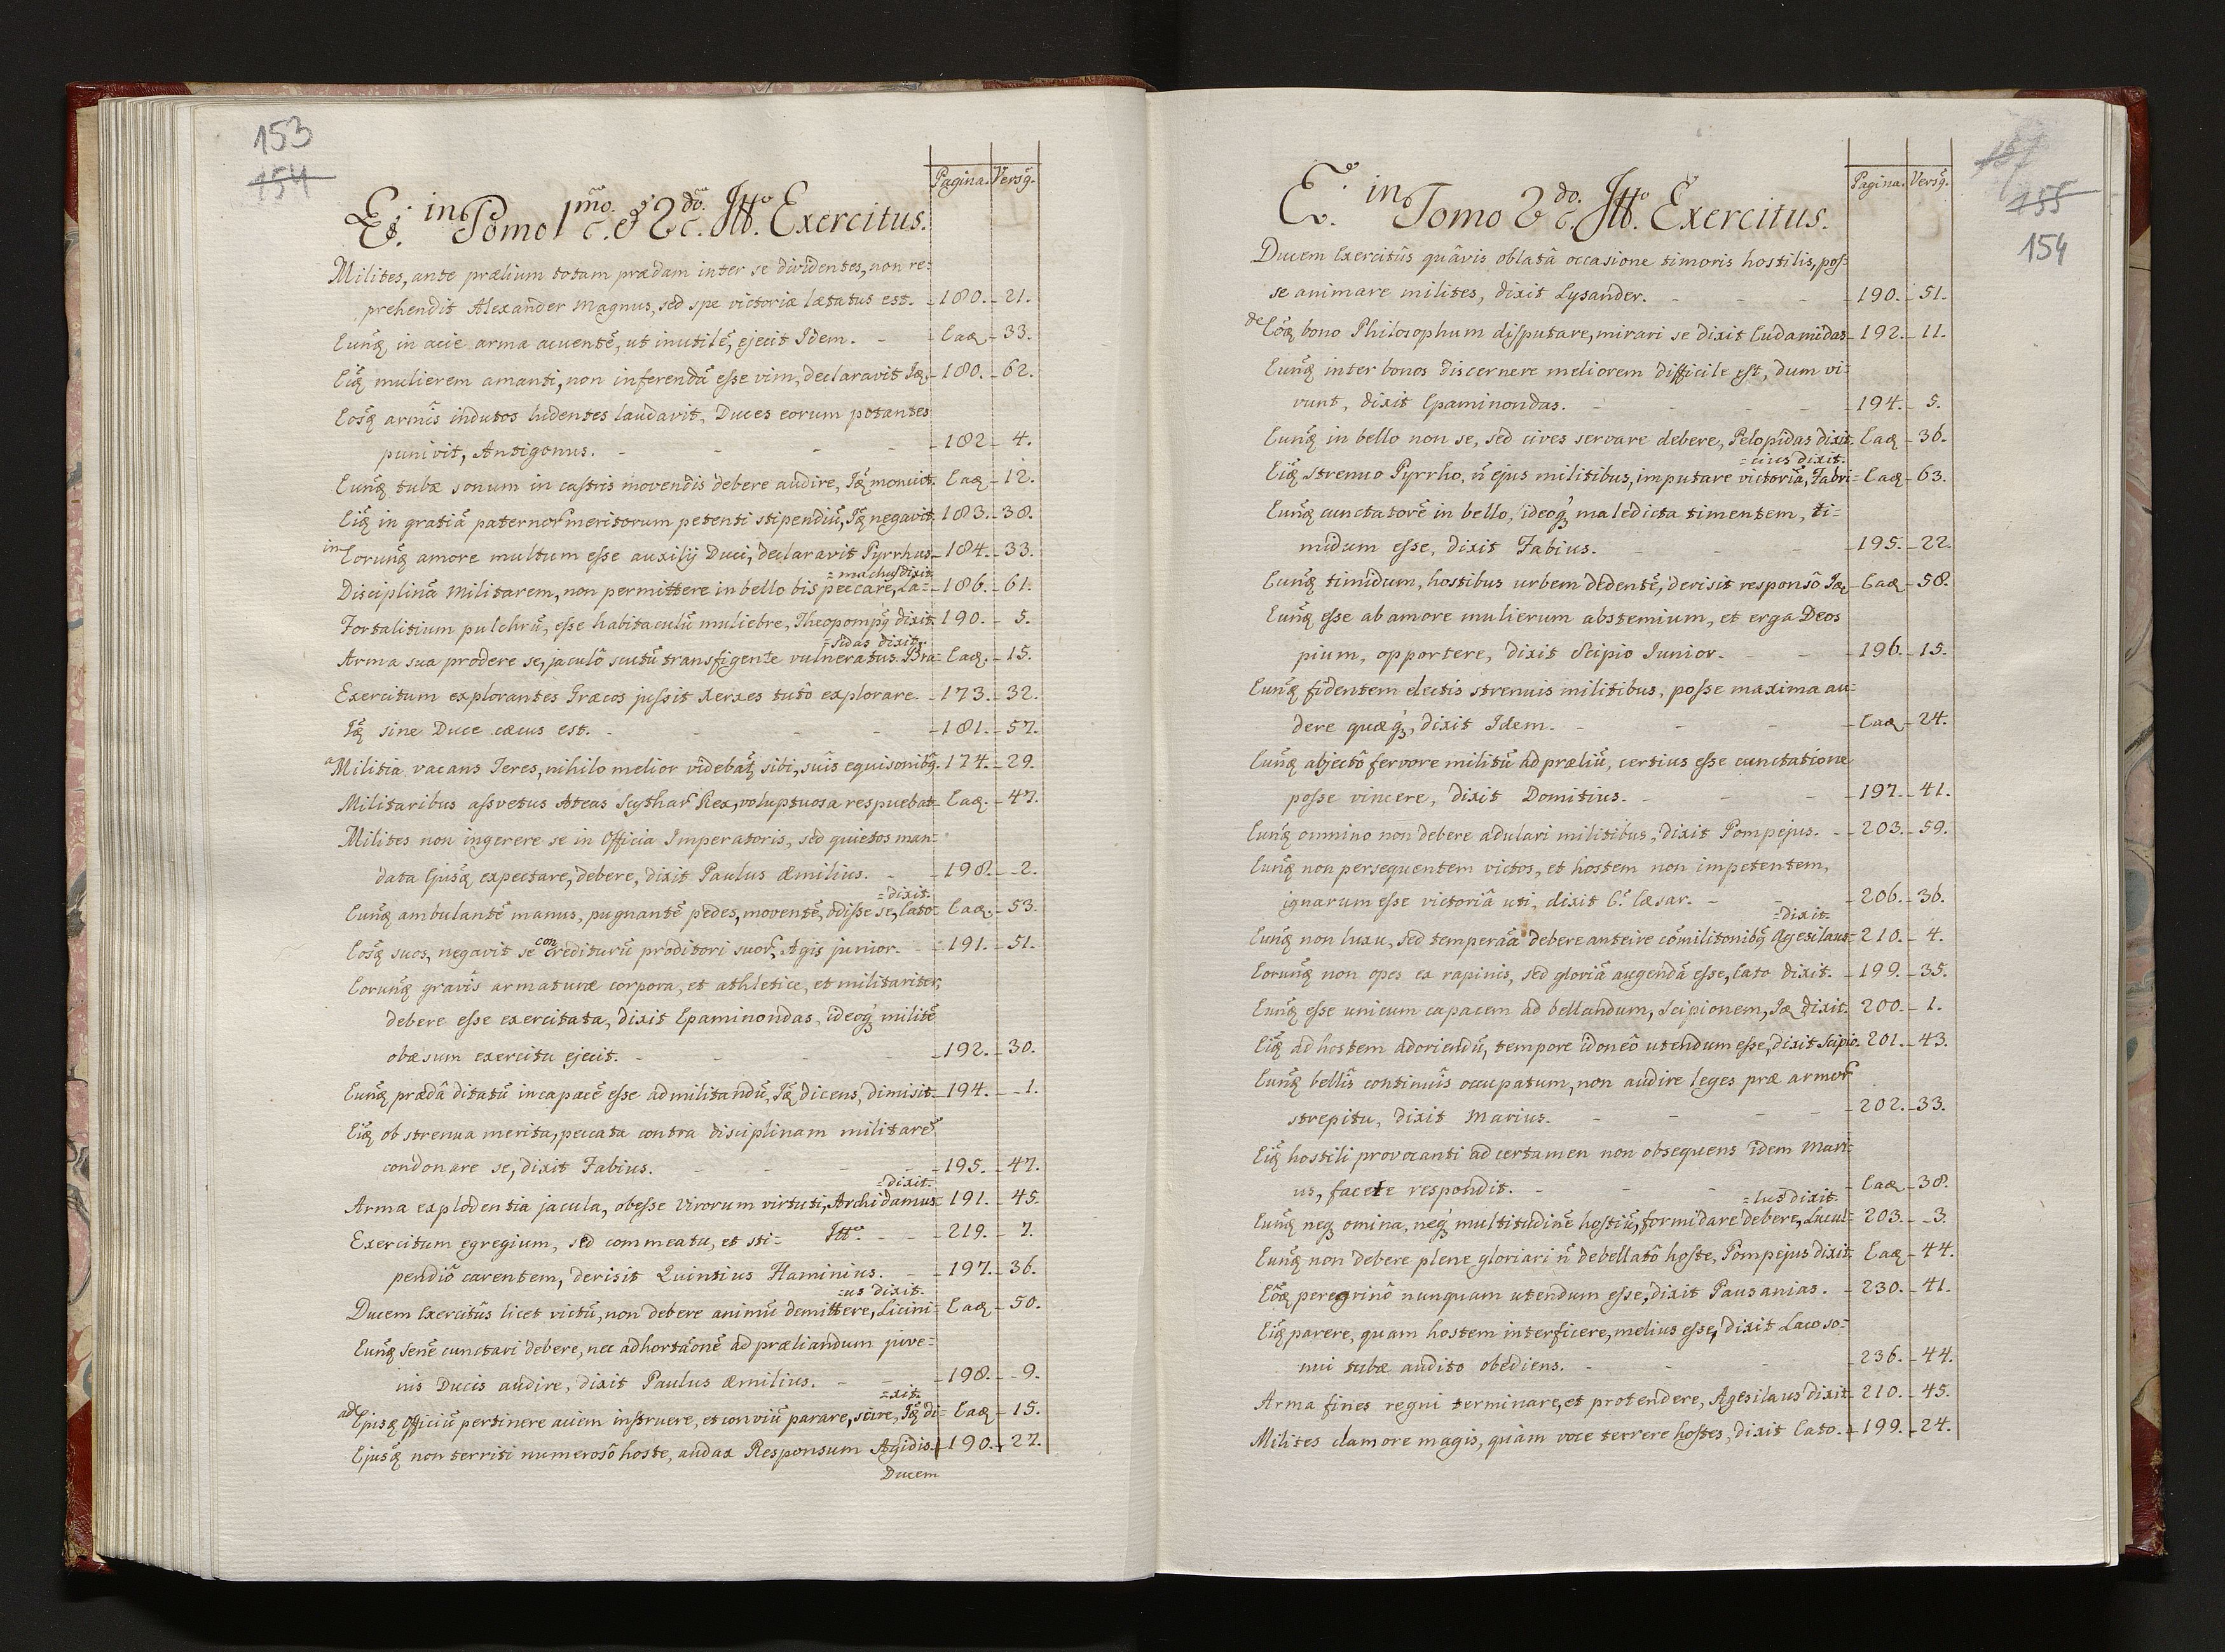 153
154
Pagina. Versꝯ.
E. in Tomo 1mo. c. & 2do. c. Itto. Exercitus.
Milites, ante prælium totam prædam inter se dividentes, non re=
prehendit Alexander Magnus, sed spe victoriæ lætatus est. - 180. - 21.
Eunq in acie arma acuentē, ut inutilē, ejecit Idem. - Eaq - 33.
Eiq mulierem amanti, non inferendā esse vim, declaravit Iq. - 180. - 62.
Eosq armis indutos ludentes laudavit, Duces eorum potantes
punivit, Antigonus. - 182 - 4.
Eunq tubæ sonum in castris movendis debere audire, Iq monuit. Eaq - 12.
Eiq in gratiā paternor meritorum petenti stipendiū, Iq negavit. 183. - 38.
in Eorunq amore multum esse auxilij Duci, declaravit Pyrrhus - 184. - 33.
= machus dixit.
Disciplinā Militarem, non permittere in bello bis peccare, La= - 186. - 61.
Fortalitium pulchrū, esse habitaculū muliebre, Theopompꝯ dixit. 190. - 5.
= sidas dixit.
Arma sua prodere se, jaculô scutū transfigente vulneratus Bra= Eaq. - 15.
Exercitum explorantes Græcos jussit Xerxes tutô explorare. - 173. - 32.
Iq sine Duce cæcus est. - 181. - 57.
a Militia vacans Teres, nihilo melior videbat sibi, suis equisonibꝯ. 174. - 29.
Militaribus assvetus Ateas Scythar Rex, voluptuosa respuebat - Eaq. - 47.
Milites non ingerere se in Officia Imperatoris, sed quietos man=
data Ejusq expectare, debere, dixit Paulus Æmilius. - 198. - 2.
= dixit.
Eunq ambulantē manus, pugnantē pedes, moventē, odisse se, Cato= Eaq. - 53.
Eosq suos, negavit se con crediturū proditori suor, Agis junior. - 191. - 51.
Eorunq gravis armaturæ corpora, et athletice, et militariter,
debere esse exercitata, dixit Epaminondas, ideoq militē
obæsum exercitu ejecit. - 192. - 30.
Eunq prædâ ditatū incapacē esse ad militandū, Iq dicens, dimisit - 194. - 1.
Eiq ob strenua merita, peccata contra disciplinam militarē
condonare se, dixit Fabius. - 195. - 47.
= dixit.
Arma explodentia jacula, obesse Virorum virtuti, Archidamus= 191. - 45.
Exercitum egregium, sed commeatu, et sti= Itto. - 219. - 7.
pendiô carentem, derisit Quintius Flaminius. - 197. - 36.
= us dixit.
Ducem Exercitûs licet victū, non debere animū demittere, Licini= Eaq - 50.
Eunq senē cunctari debere, nec adhortāonē ad præliandum juve=
nis Ducis audire, dixit Paulus Æmilius. - 198. - 9.
= xit.
ad Ejusq Officiū pertinere aciem instruere, et conviū parare, scire, Iq di= Eaq - 15.
Ejusq non territi numerosô hoste, audax Responsum Agidis. - 190. - 27.
Ducem
157
155
154
Pagina. Versꝯ.
E. in Tomo 2do. c. Itto. Exercitus.
Ducem Exercitûs quâvis oblatâ occasione timoris hostilis, pos=
se animare milites, dixit Lysander. - 190. - 51.
de Eoq bono Philosophum disputare, mirari se dixit Eudamidas - 192. - 11.
Eunq inter bonos discernere meliorem difficile est, dum vi=
vunt, dixit Epaminondas. - 194. - 5.
Eunq in bello non se, sed cives servare debere, Pelopidas dixit. Eaq - 36.
= cius dixit.
Eiq strenuo Pyrrho, ñ ejus militibus, imputare victoriā, Fabri= Eaq - 63.
Eunq cunctatorē in bello, ideoq maledicta timentem, ti=
midum esse, dixit Fabius. - 195. - 22.
Eunq timidum, hostibus urbem dedentē, derisit responsô Iq - Eaq - 58.
Eunq esse ab amore mulierum abstemium, et erga Deos
pium, opportere, dixit Scipio Junior. - 196. - 15.
Eunq fidentem electis strenuis militibus, posse maxima au=
dere quæq, dixit Idem. - Eaq - 24.
Eunq abjectô fervore militū ad præliū, certius esse cunctatione
posse vincere, dixit Domitius. - 197. - 41.
Eunq omnino non debere adulari militibus, dixit Pompejus. - 203. - 59.
Eunq non persequentem victos, et hostem non impetentem,
ignarum esse victoriâ uti, dixit C. Cæsar. - 206. - 36.
= dixit.
Eunq non luxu, sed temperāa debere anteire cōmilitonibꝯ Agesilaus= 210. - 4.
Eorunq non opes ex rapinis, sed gloriā augendā esse, Cato dixit. - 199. - 35.
Eunq esse unicum capacem ad bellandum, Scipionem, Iq dixit. 200. - 1.
Eiq ad hostem adoriendū, tempore idoneô utendum esse, dixit Scipio. 201. - 43.
Eunq bellis continuis occupatum, non audire leges præ armor
strepitu, dixit Marius. - 202. - 33.
Eiq hostili provocanti ad certamen non obsequens idem Mari=
us, facete respondit. - Eaq - 38.
= lus dixit.
Eunq neq omina, neq multitudinē hostiū, formidare debere, Lucul= 203. - 3.
Eunq non debere plene gloriari ñ debellatô hoste, Pompejus dixit. Eaq - 44.
Eôq peregrinô nunquam utendum esse, dixit Pausanias. - 230. - 41.
Eiq parere, quam hostem interficere, melius esse, dixit Laco so=
nui tubæ audito obediens. - 236. - 44.
Arma fines regni terminare, et protendere, Agesilaus dixit - 210. - 45.
Milites clamore magis, quàm voce terrere hostes, dixit Cato. - 199. - 24.